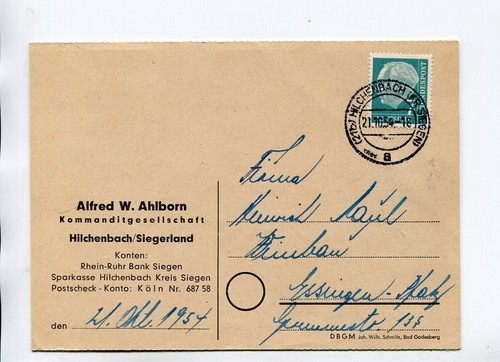 DEUTSCHE BUNDESPOST
(21b) HILCHENBACH (KR SIEGEN)
21.10.54.-18
a
Firma
Alfred W. Ahlborn
Kommanditgesellschaft
Heinrich
Hilchenbach/Siegerland
Weinbau
Konten:
Rhein-Ruhr Bank Siegen
Sparkasse Hilchenbach Kreis Siegen
Postscheck-Konto: Köln Nr. 687 58
Essingen-Pfalz
den 21. Okt. 1954
DBGM Joh. Wilh. Schmitz, Bad Godesberg